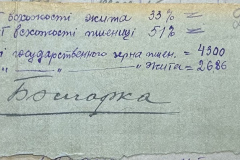 Т всхожости жита 33% =
Т всхожости пшениці 51% =
і государственного зерна пшен. = 4900
" " " жита = 2686
Болгарка